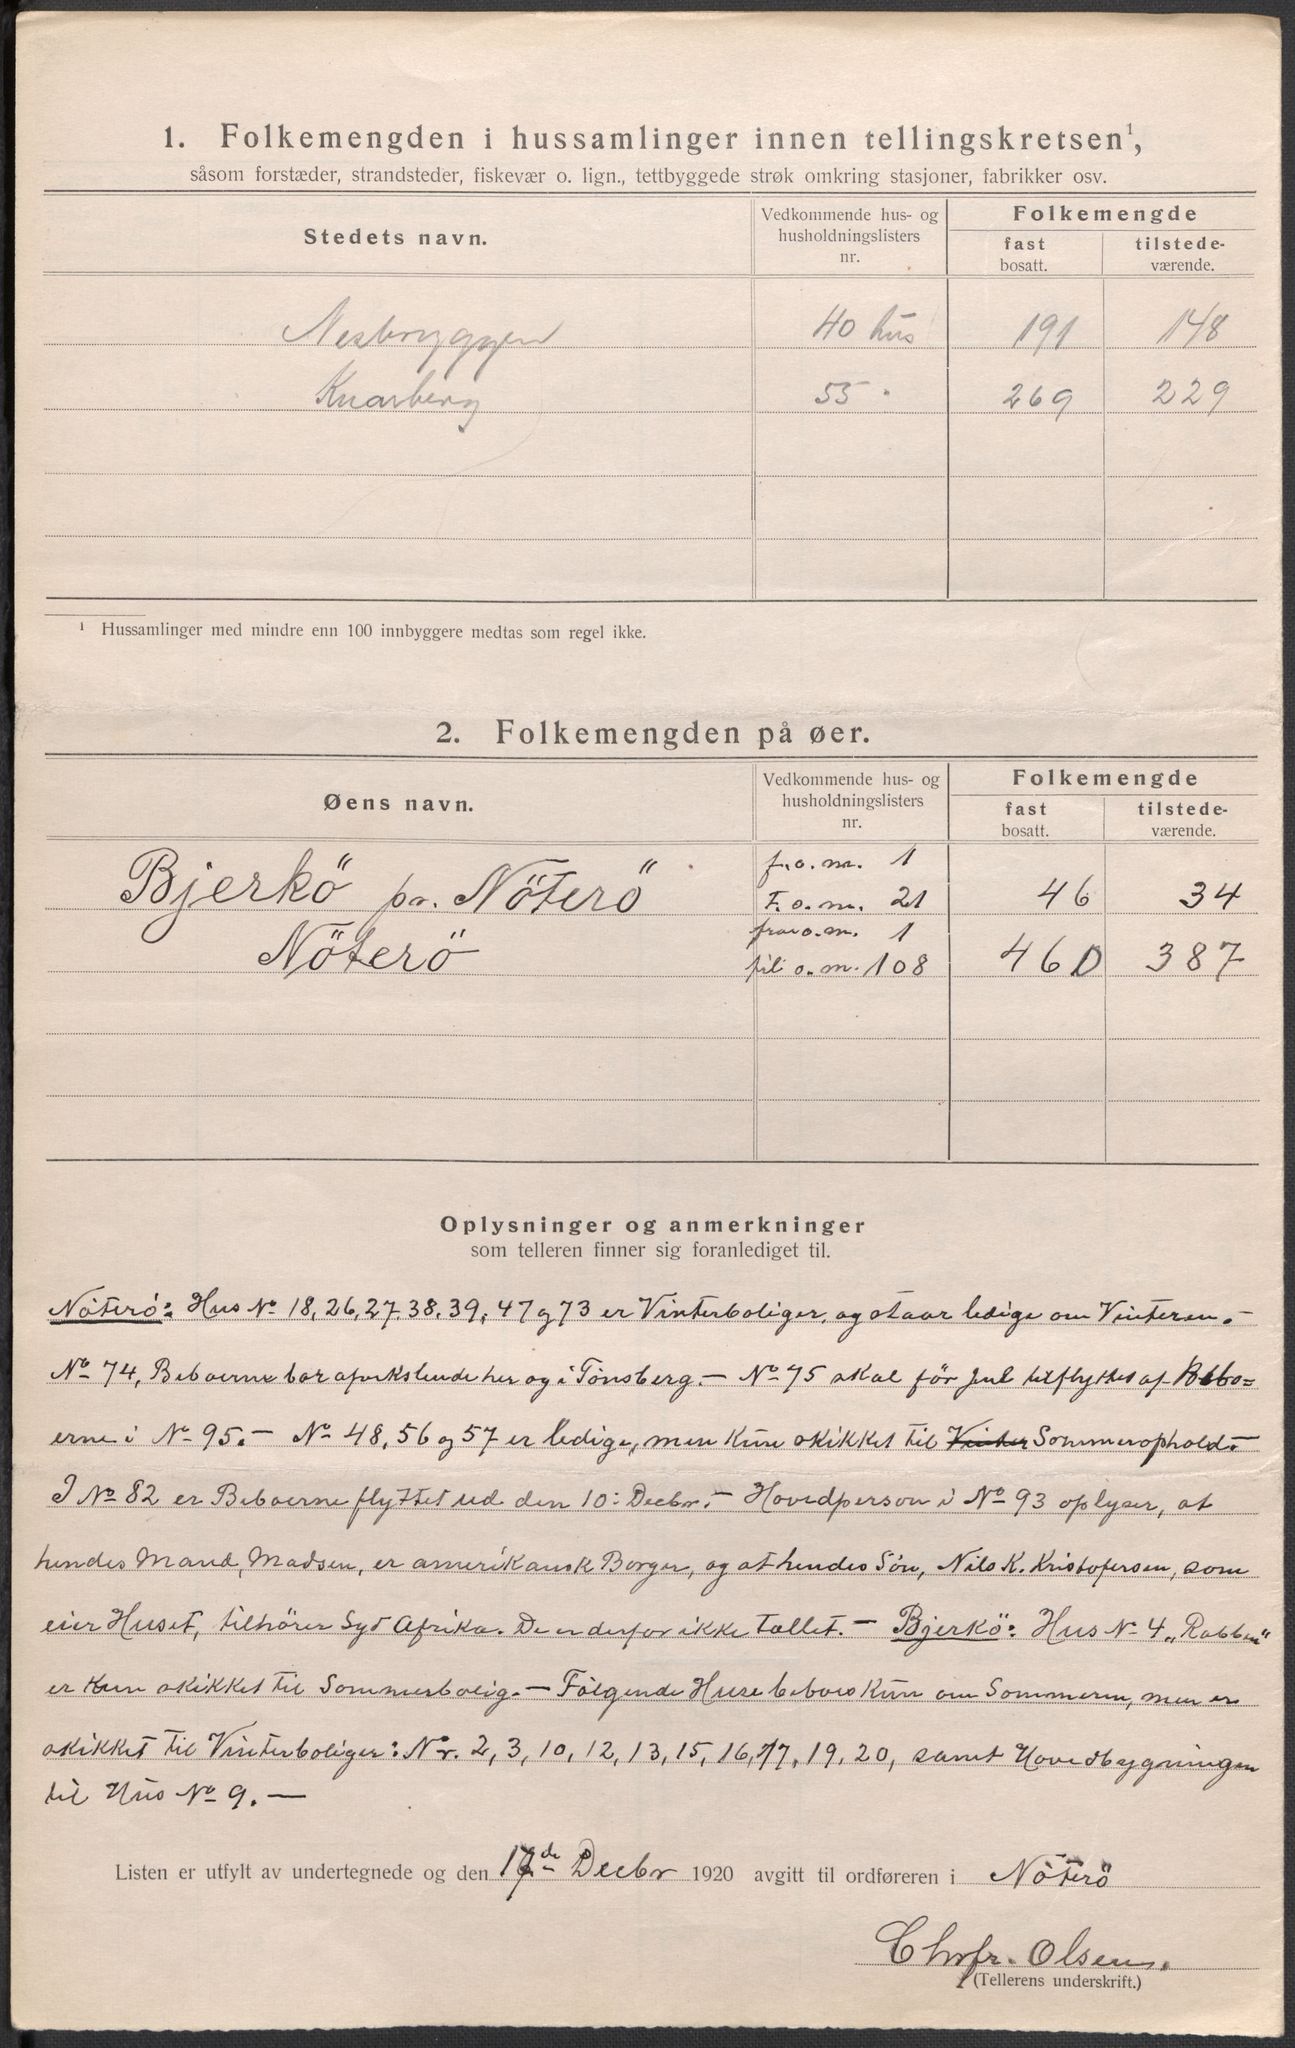 1. Folkemengden i hussamlinger innen tellingskretsen¹,
såsom forstæder, strandsteder, fiskevær o. lign., tettbyggede strøk omkring stasjoner, fabrikker osv.
Stedets navn.
Vedkommende hus- og husholdningslisters nr.
Folkemengde
fast bosatt.
tilstede-værende.
Nesbryggen 40 hus 191 148
Knarberg 55 " 269 229
¹ Hussamlinger med mindre enn 100 innbyggere medtas som regel ikke.
2. Folkemengden på øer.
Øens navn.
Vedkommende hus- og husholdningslisters nr.
Folkemengde
fast bosatt.
tilstede-værende.
f. o. m. 1
Bjerkö pr. Nöterö T. o. m. 21 46 34
fra o. m. 1
Nöterö til o. m. 108 460 387
Oplysninger og anmerkninger
som telleren finner sig foranlediget til.
Nöterö: Hus No 18, 26, 27, 38, 39, 47 og 73 er Vinterboliger, og staar ledige om Vinteren. –
No 74, Beboerne bor afvekslende her og i Tönsberg. – No 75 skal för Jul tilflyttes af Bebo=
erne i No 95. – No 48, 56 og 57 er ledige, men kun skikket til Vinter Sommerophold. –
I No 82 er Beboerne flyttet ud den 10: Decbr. – Hovedperson i No 93 oplyser, at
hendes Mand, Madsen, er amerikansk Borger, og at hendes Sön, Nils K. Kristofersen, som
eier Huset, tilhörer Syd Afrika. De er derfor ikke tællet. – Bjerkö: Hus No 4 „Rabben"
er kun skikket til Sommerbolig. – Fölgende Huse beboes kun om Sommeren, men er
skikket til Vinterboliger: Nr. 2, 3, 10, 12, 13, 15, 16, 17, 19, 20, samt Hovedbygningen
til Hus No 9. –
Listen er utfylt av undertegnede og den 17de Decbr 1920 avgitt til ordføreren i Nöterö
Chrfr. Olsen.
(Tellerens underskrift.)